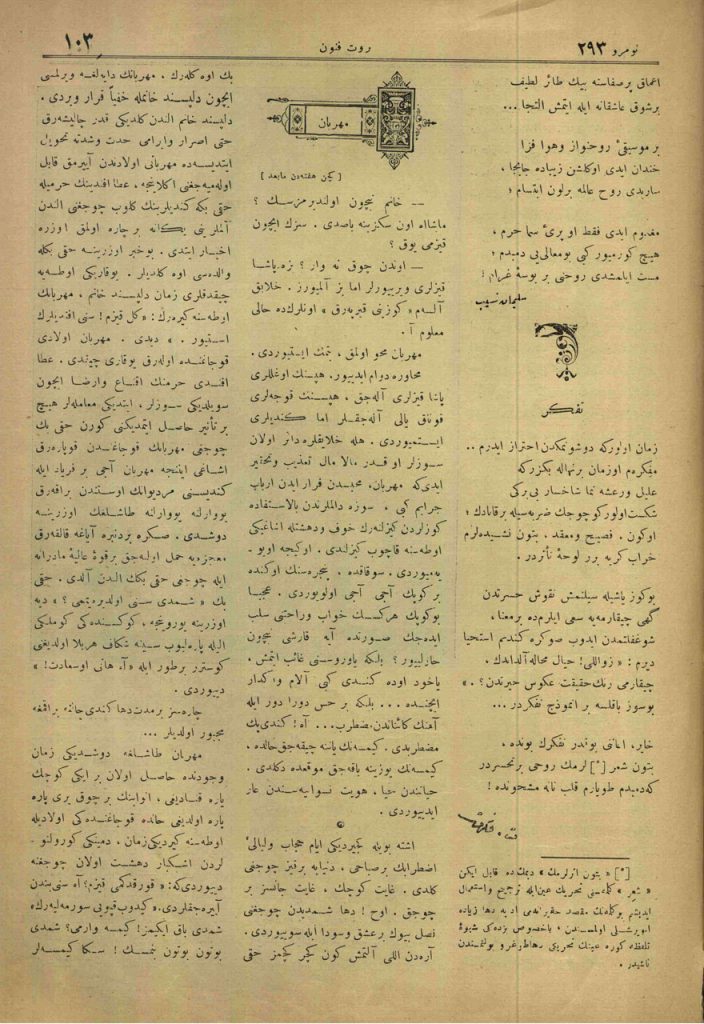 نومرو ٢٩٣
ثروت فنون
١٠٣
اعماق پرصفاسنه بيك طائر لطيف
برشوق عاشقانه ايله ايتمش التجا ...
بر موسيقئ روحنواز وهوا فزا
خندان ايدی اوكلشن زيباده جابجا ،
ساريدی روح عالمه برلون ابتسام ؛
مغموم ايدی فقط او پری سما حرم ،
هيچ كورميور كبی بومعالی بی دمبدم ؛
مست ايلمشدی روحنی بر بوسهٔ غرام !
سليمان نسيب
تفكر
زمان اولوركه دوشونمكدن احتراز ايدرم ..
مفكره‌م اوزمان برنهاله بكزركه
عليل ورعشه نما شاخسار بی برگی
شكست اولور كوچوجك ضربه‌سيله برقابادك ؛
اوكون . فصيح ومعقد . بتون نشيده‌لرم
خراب كريه برر لوحهٔ تأثردر .
بوكوز ياشيله سيلنمش نقوش حسرتدن
گهی چيقارمه‌يه سعی ايلرم‌ده برمعنا ،
شوغفلتمدن ايدوب صوكره كندم استحيا
ديرم : « زواللی ! خيال محاله آلداندك .
چيقارمی رنك حقيقت عكوس حيرتدن ؟ . »
بوسوز باقلسه بر انموذج تفكردر ...
خاير، امانی بوندر تفكرك بونده ،
بتون شعر [*] لرمك روحی برتحسردر
كه دمبدم طويارم قلب ناله مشحونده !
[*] « بتون اثرلرمك » ديمك‌ده قابل ايكن
« شعر » كله‌سنی تحريك عين ايله ترجيح واستعمال
ايديشم بوكله‌نك مقصد حقيرانه‌می اديه دها زياده
الويرشلی اولمسندن ، باخصوص بزده‌كی شيوهٔ
تلفظه كوره عينك تحريكی دها طوغرو بولنمسندن
ناشيدر .
مهربان
[ كچن هفته‌دن مابعد ]
— خانم نيچون اولنديرمزسك ؟
ماشاالله اون سكزينه باصدی . سزك ايچون
قيزمی يوق ؟
— اوندن چوق نه وار ؟ نره پاشا
قيزلری ويرييورلر اما بز آلميورز . خلايق
آله‌م « كوزينی قيزپه‌رق » اونلرك‌ده حالی
معلوم آ .
مهربان محو اولمق ، بتمك ايستيوردی .
محاوره دوام ايدييور. هپسنك اوغللری
پاشا قيزلری آله‌جق ، هپسنك قوجه‌لری
قوناق يالی آله‌جقلر اما كنديلری
ايسته‌ميوردی . هله خلايقلره دائر اولان
سوزلر او قدر مالا مال تعذيب وتحقير
ايدی‌كه مهربان، محبسدن فرار ايدن ارباب
جرايم كبی . سوزه دالملرندن بالاستفاده
كوزلردن كيزلنه‌رك خوف ودهشتله اشاغيكی
اوطه‌سنه قاچوب كيزلندی . اوكيجه اويو-
يه‌ميوردی . سوقاقده . پنجره‌سنك اوكنده
بركوپك آجی آجی اولويوردی . عجبا
بوكوپك هركسك خواب وراحتنی سلب
ايده‌جك صورتده آيه قارشی نيچون
حاوليور ؟ بلكه ياوروسنی غائب ايتمش ،
ياخود اوده كندی كبی آلام واكدار
ايچنده ... بلكه بر حس دورا دور ايله
آهنك كائناتدن مضطرب ... آه ! كندی پك
مضطربدی . كيمسه‌نك ياننه چيقه‌جق حالده ،
كيمسه‌نك يوزينه باقه‌جق موقعده دكلدی .
حياتندن حيا ، هويت نسوانيه‌سندن عار
ايدييوردی .
اشته بويله كچيرديكی ايام حجاب وليالئ
اضطرابك برصباحی ، دنيايه برقيز چوجغی
كلدی . غايت كوچك ، غايت جانسز بر
چوجق . اوح ! دها شمديدن چوجغنی
نصل بيوك برعشق وسودا ايله سوييوردی .
آره‌دن اللی آلتمش كون كچر كچمز حقی
بك اوه كله‌رك ، مهربانك دايه‌لغه ويرلمسی
ايچون دلپسند خانمله خفياً قرار ويردی .
دلپسند خانم الندن كلديكی قدر چاليشه‌رق
حتی اصرار وابرامی حدت وشدته تحويل
ايتديسه‌ده مهربانی اولادندن آييرمق قابل
اوله‌ميه‌جغنی اكلاينجه ، عطا افندينك حرميله
حقی بكه كنديلرينك كلوب چوجغی الندن
آلملرينی يكانه بر چاره اولمق اوزره
اخبار ايتدی . بوخبر اوزرينه حقی بكله
والده‌سی اوه كلديلر . يوقاريكی اوطه‌يه
چيقدقلری زمان دلپسند خانم ، مهربانك
اوطه‌سنه كيره‌رك : « كل قيزم ! سنی افنديلرك
ايستيور . » ديدی . مهربان اولادی
قوجاغنده اوله‌رق يوقاری چيقدی . عطا
افندی حرمنك اقناع وارضا ايچون
سويلديكی سوزلر ، ايتديكی معامله‌لر هيچ
بر تأثير حاصل ايتمديكنی كورن حقی بك
چوجغی مهربانك قوجاغندن قوپاره‌رق
اشاغی ايننجه مهربان آجی بر فرياد ايله
كنديسنی مرديوانك اوستندن براقه‌رق
يووارلنه يووارلنه طاشلغك اوزرينه
دوشدی . صكره بردنبره آياغه قالقه‌رق
معجزه‌يه حمل اوله‌جق برقوهٔ عاليهٔ مادرانه
ايله چوجغی حقی بكك الندن آلدی . حقی
بك « شمدی سنی اولديره‌يممی ؟ » ديه
اوزرينه يورونجه ، كوكسنده‌كی كوملكی
اليله پاره‌ليوب سينهٔ شكاف هر بلا اولديغنی
كوسترر برطور ايله « آه هانی اوسعادت ! »
دييوردی .
چاره‌سز برمدت دها كندی حالنه براقمغه
مجبور اولديلر ...
مهربان طاشلغه دوشديكی زمان
وجودنده حاصل اولان بر ايكی كوچك
ياره قناديفی ، اثوابنك برچوق يری پاره
پاره اولديغی حالده قوجاغنده‌كی اولاديله
اوطه‌سنه كيرديكی زمان ، دمينكی كورولتو-
لردن اشكبار دهشت اولان چوجغنه
دييوردی‌كه : « قورقدكمی قيزم ؟ آه سنی بندن
آييره‌جقلردی . » كيدوب قپويی سورمه‌ليه‌رك
شمدی باق ايكيمز ! كيمسه وارمی ؟ شمدی
بوتون بوتون بنمسك ! سكا كيمسه‌لر